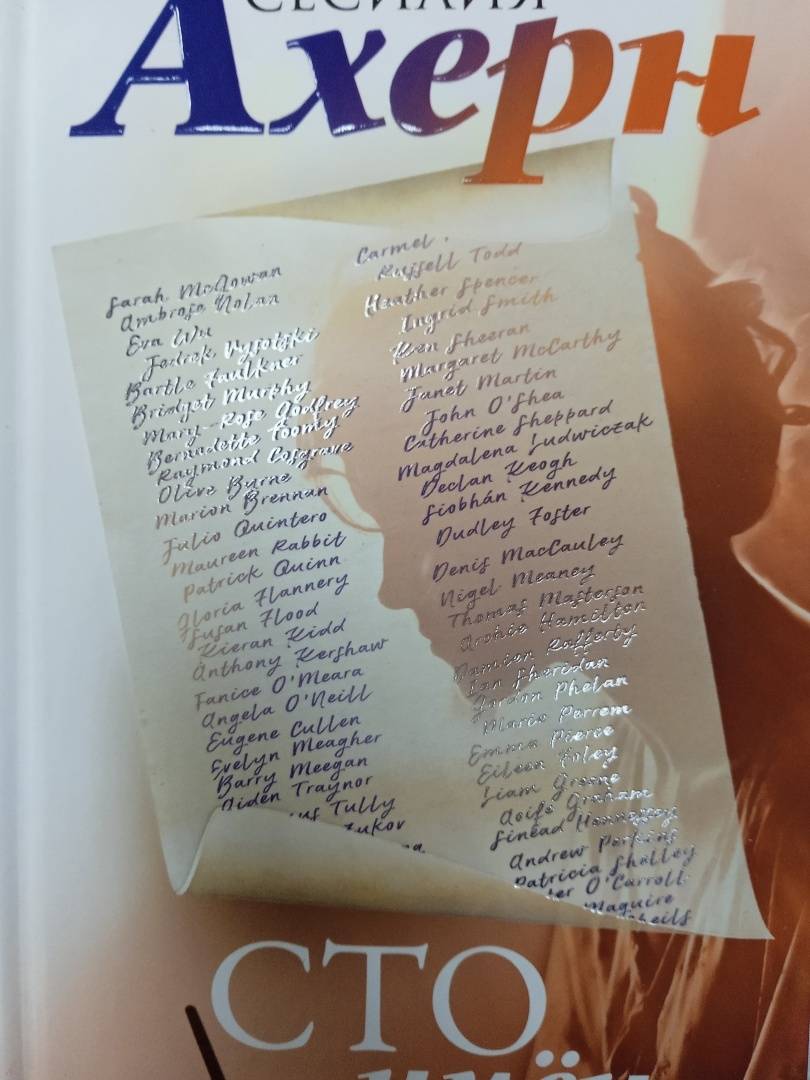 Ахерн
Sarah McGowan
Ambrose Nolan
Eva Wu
Jedrek Vysotski
Bartle Faulkner
Bridget Murphy
Mary-Rose Godfrey
Bernadette Toomy
Raymond Cosgrave
Olive Byrne
Marion Brennan
Julio Quintero
Maureen Rabbit
Patrick Quinn
Gloria Flannery
Susan Flood
Kieran Kidd
Anthony Kershaw
Janice O'Meara
Angela O'Neill
Eugene Cullen
Evelyn Meagher
Barry Meegan
Aiden Traynor
Tully
Carmel
Russell Todd
Heather Spencer
Ingrid Smith
Ken Sheeran
Margaret McCarthy
Janet Martin
John O'Shea
Catherine Sheppard
Magdalena Ludwiczak
Declan Keogh
Siobhán Kennedy
Dudley Foster
Denis MacCauley
Nigel Meaney
Thomas Masterson
Archie Hamilton
Damien Rafferty
Ian Sheridan
Gordon Phelan
Marie Perrem
Emma Pierce
Eileen Foley
Liam Greene
Aoife Graham
Sinéad Hennessy
Andrew Perkins
Patricia Shelley
O'Carroll
Maguire
СТО